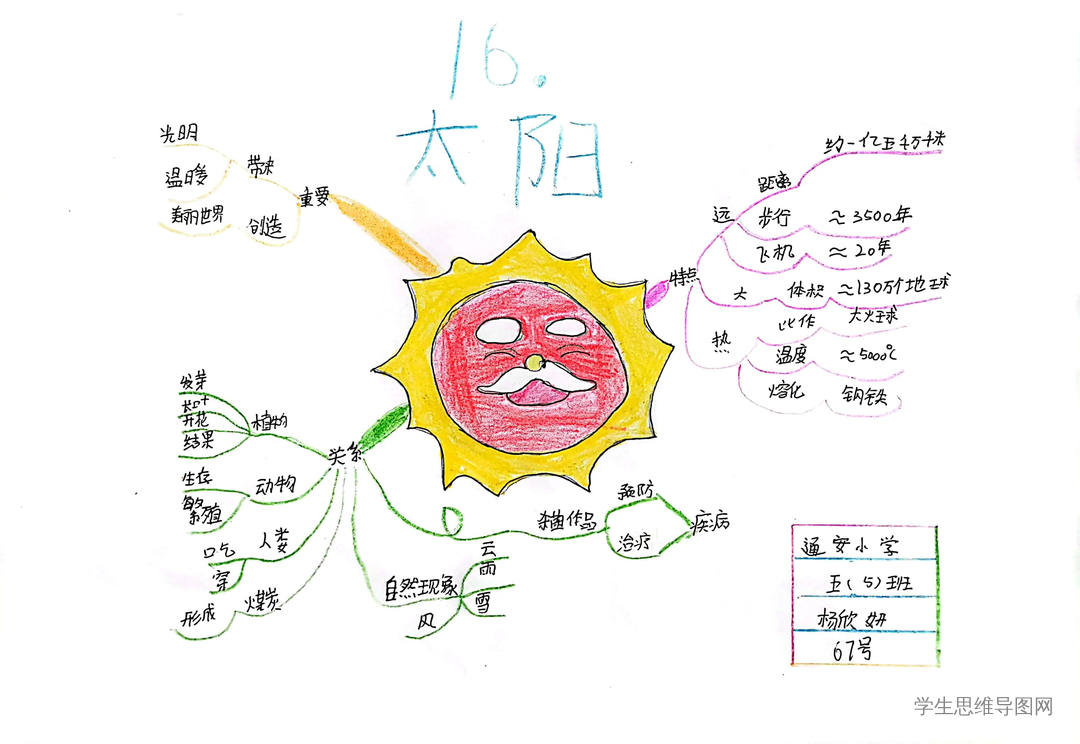 16.
太阳
重要
带来
光明
温暖
创造
美丽世界
特点
远
距离
约一亿五千万千米
步行
≈3500年
飞机
≈20年
大
体积
≈130万个地球
热
比作
大火球
温度
≈5000℃
熔化
钢铁
关系
植物
发芽
长叶
开花
结果
动物
生存
繁殖
人类
口吃
穿
煤炭
形成
自然现象
云
雨
雪
风
杀菌作品
预防
治疗
疾病
通安小学
五(5)班
杨欣妍
67号
学生思维导图网